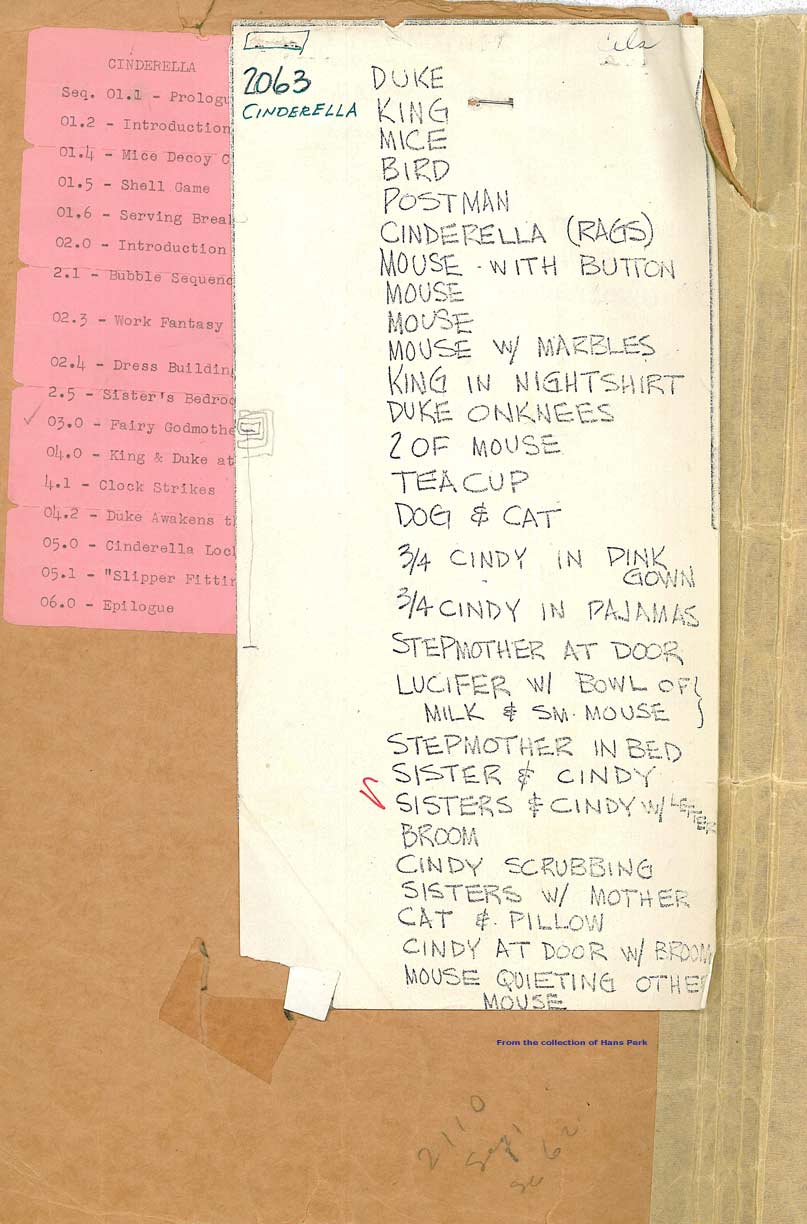 CINDERELLA
Seq. 01.1 - Prologu
01.2 - Introduction
01.4 - Mice Decoy C
01.5 - Shell Game
01.6 - Serving Brea
02.0 - Introduction
2.1 - Bubble Sequenc
02.3 - Work Fantasy
02.4 - Dress Buildin
2.5 - Sister's Bedroo
03.0 - Fairy Godmothe
04.0 - King & Duke at
4.1 - Clock Strikes
04.2 - Duke Awakens t
05.0 - Cinderella Loc
05.1 - "Slipper Fittin
06.0 - Epilogue
2063
CINDERELLA
DUKE
KING
MICE
BIRD
POSTMAN
CINDERELLA (RAGS)
MOUSE - WITH BUTTON
MOUSE
MOUSE
MOUSE W/ MARBLES
KING IN NIGHTSHIRT
DUKE ON KNEES
2 OF MOUSE
TEA CUP
DOG & CAT
3/4 CINDY IN PINK
GOWN
3/4 CINDY IN PAJAMAS
STEPMOTHER AT DOOR
LUCIFER W/ BOWL OF
MILK & SM. MOUSE
STEPMOTHER IN BED
SISTER & CINDY
SISTERS & CINDY W/ LETTER
BROOM
CINDY SCRUBBING
SISTERS W/ MOTHER
CAT & PILLOW
CINDY AT DOOR W/ BROOM
MOUSE QUIETING OTHER
MOUSE
From the collection of Hans Perk
2110